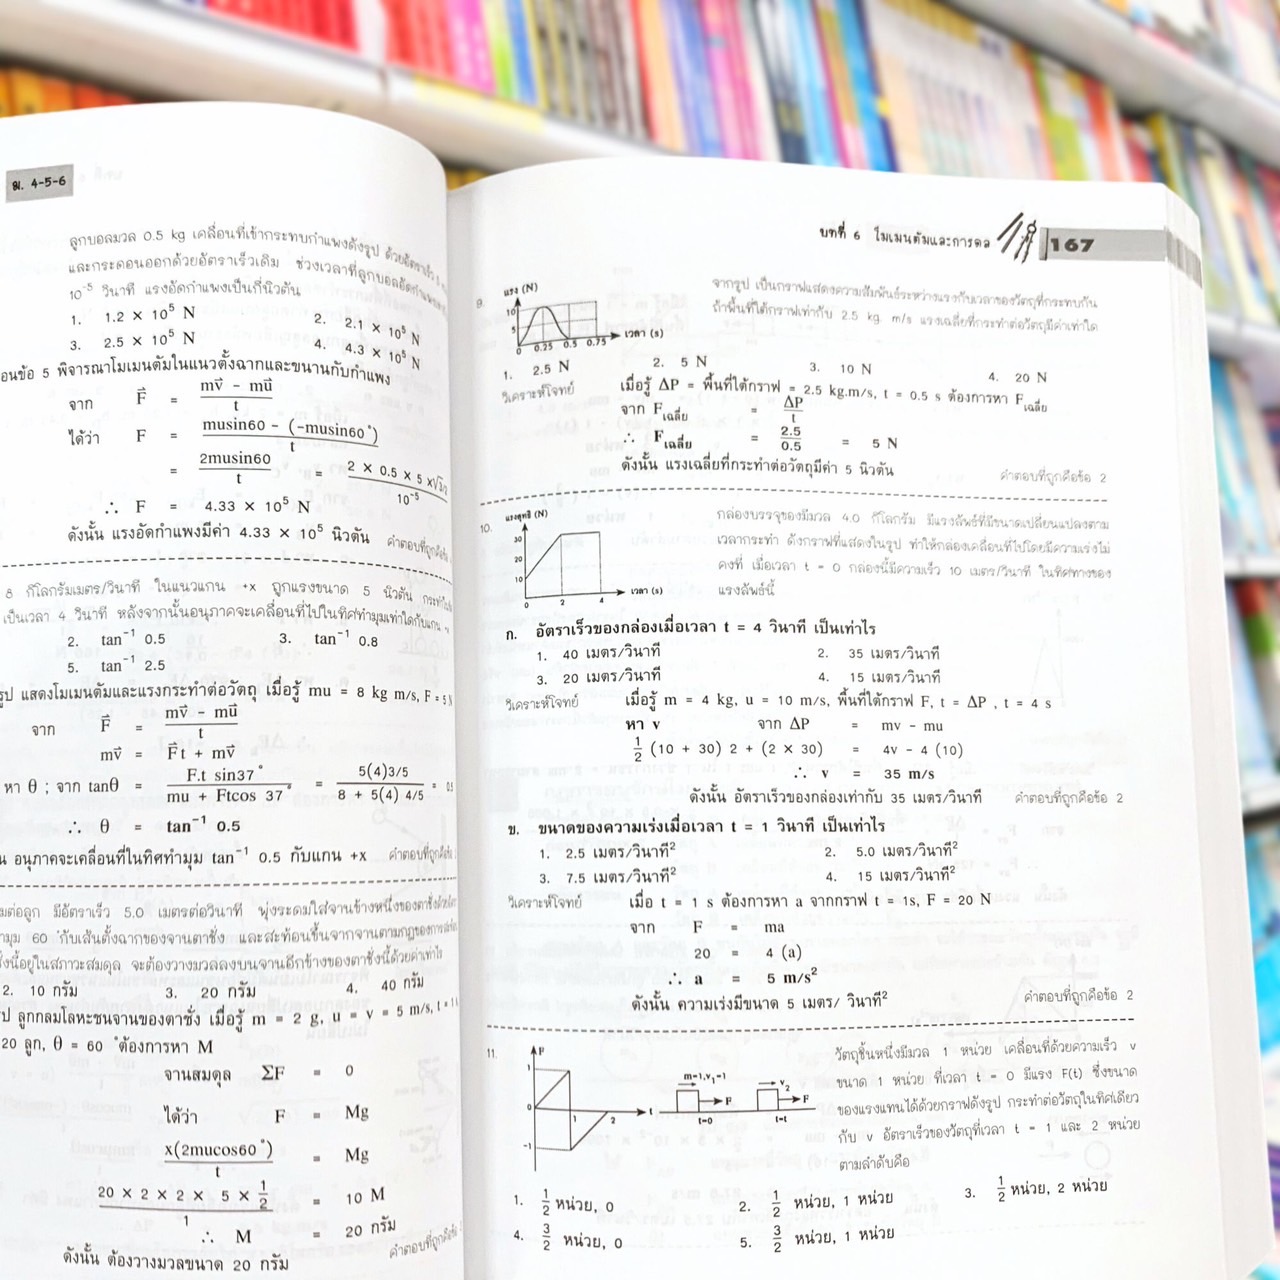 ม. 4-5-6
ลูกบอลมวล 0.5 kg เคลื่อนที่เข้ากระทบกำแพงดังรูป ด้วยอัตราเร็ว 5
และกระดอนออกด้วยอัตราเร็วเดิม ช่วงเวลาที่ลูกบอลอัดกำแพง
10⁻⁵ วินาที แรงอัดกำแพงเป็นกี่นิวตัน
1. 1.2 × 10⁵ N 2. 2.1 × 10⁵ N
3. 2.5 × 10⁵ N 4. 4.3 × 10⁵ N
อนข้อ 5 พิจารณาโมเมนตัมในแนวตั้งฉากและขนานกับกำแพง
จาก F⃗ = (mv⃗ − mu⃗)/t
ได้ว่า F = (musin60 − (−musin60°))/t
= 2musin60/t = (2 × 0.5 × 5 × √3/2)/10⁻⁵
∴ F = 4.33 × 10⁵ N
ดังนั้น แรงอัดกำแพงมีค่า 4.33 × 10⁵ นิวตัน คำตอบที่ถูกคือข้อ
8 กิโลกรัมเมตร/วินาที ในแนวแกน +x ถูกแรงขนาด 5 นิวตัน กระทำใน
เป็นเวลา 4 วินาที หลังจากนั้นอนุภาคจะเคลื่อนที่ไปในทิศทำมุมเท่าใดกับแกน +x
2. tan⁻¹ 0.5 3. tan⁻¹ 0.8
5. tan⁻¹ 2.5
รูป แสดงโมเมนตัมและแรงกระทำต่อวัตถุ เมื่อรู้ mu = 8 kg m/s, F = 5 N
จาก F⃗ = (mv⃗ − mu⃗)/t
mv⃗ = F⃗t + mv⃗
หา θ ; จาก tanθ = F.t sin37°/(mu + Ftcos 37°) = 5(4)3/5/(8 + 5(4) 4/5) = 0.5
∴ θ = tan⁻¹ 0.5
น อนุภาคจะเคลื่อนที่ในทิศทำมุม tan⁻¹ 0.5 กับแกน +x คำตอบที่ถูกคือข้อ
มต่อลูก มีอัตราเร็ว 5.0 เมตรต่อวินาที พุ่งระดมใส่จานข้างหนึ่งของตาชั่ง
ามุม 60° กับเส้นตั้งฉากของจานตาชั่ง และสะท้อนขึ้นจากจานตามกฎของการสะท้อน
ั่งนี้อยู่ในสภาวะสมดุล จะต้องวางมวลลงบนจานอีกข้างของตาชั่งนี้ด้วยค่าเท่าไร
2. 10 กรัม 3. 20 กรัม 4. 40 กรัม
ูป ลูกกลมโลหะชนจานของตาชั่ง เมื่อรู้ m = 2 g, u = v = 5 m/s, t = 1
20 ลูก, θ = 60 °ต้องการหา M
จานสมดุล ΣF = 0
ได้ว่า F = Mg
x(2mucos60°)/t = Mg
(20 × 2 × 2 × 5 × 1/2)/1 = 10 M
∴ M = 20 กรัม
ดังนั้น ต้องวางมวลขนาด 20 กรัม คำตอบที่ถูกคือข้อ
บทที่ 6 โมเมนตัมและการดล 167
9. แรง (N)
10
5
0 0.25 0.5 0.75 เวลา (s)
จากรูป เป็นกราฟแสดงความสัมพันธ์ระหว่างแรงกับเวลาของวัตถุที่กระทบกัน
ถ้าพื้นที่ใต้กราฟเท่ากับ 2.5 kg m/s แรงเฉลี่ยที่กระทำต่อวัตถุมีค่าเท่าใด
1. 2.5 N 2. 5 N 3. 10 N 4. 20 N
วิเคราะห์โจทย์ เมื่อรู้ ΔP = พื้นที่ใต้กราฟ = 2.5 kg.m/s, t = 0.5 s ต้องการหา Fเฉลี่ย
จาก Fเฉลี่ย = ΔP/t
∴ Fเฉลี่ย = 2.5/0.5 = 5 N
ดังนั้น แรงเฉลี่ยที่กระทำต่อวัตถุมีค่า 5 นิวตัน คำตอบที่ถูกคือข้อ 2
10. แรงลัพธ์ (N)
30
20
10
0 2 4 เวลา (s)
กล่องบรรจุของมีมวล 4.0 กิโลกรัม มีแรงลัพธ์ที่มีขนาดเปลี่ยนแปลงตาม
เวลากระทำ ดังกราฟที่แสดงในรูป ทำให้กล่องเคลื่อนที่ไปโดยมีความเร่งไม่
คงที่ เมื่อเวลา t = 0 กล่องนี้มีความเร็ว 10 เมตร/วินาที ในทิศทางของ
แรงลัพธ์นี้
ก. อัตราเร็วของกล่องเมื่อเวลา t = 4 วินาที เป็นเท่าไร
1. 40 เมตร/วินาที 2. 35 เมตร/วินาที
3. 20 เมตร/วินาที 4. 15 เมตร/วินาที
วิเคราะห์โจทย์ เมื่อรู้ m = 4 kg, u = 10 m/s, พื้นที่ใต้กราฟ F, t = ΔP , t = 4 s
หา v จาก ΔP = mv - mu
1/2 (10 + 30) 2 + (2 × 30) = 4v - 4 (10)
∴ v = 35 m/s
ดังนั้น อัตราเร็วของกล่องเท่ากับ 35 เมตร/วินาที คำตอบที่ถูกคือข้อ 2
ข. ขนาดของความเร่งเมื่อเวลา t = 1 วินาที เป็นเท่าไร
1. 2.5 เมตร/วินาที² 2. 5.0 เมตร/วินาที²
3. 7.5 เมตร/วินาที² 4. 15 เมตร/วินาที²
วิเคราะห์โจทย์ เมื่อ t = 1 s ต้องการหา a จากกราฟ t = 1s, F = 20 N
จาก F = ma
20 = 4 (a)
∴ a = 5 m/s²
ดังนั้น ความเร่งมีขนาด 5 เมตร/ วินาที² คำตอบที่ถูกคือข้อ 2
11. F
1
0 1 2 t
-1
m=1,v₁=1 F t=0
v₂ F t=t
วัตถุชิ้นหนึ่งมีมวล 1 หน่วย เคลื่อนที่ด้วยความเร็ว v
ขนาด 1 หน่วย ที่เวลา t = 0 มีแรง F(t) ซึ่งขนาด
ของแรงแทนได้ด้วยกราฟดังรูป กระทำต่อวัตถุในทิศเดียว
กับ v อัตราเร็วของวัตถุที่เวลา t = 1 และ 2 หน่วย
ตามลำดับคือ
1. 1/2 หน่วย, 0 2. 1/2 หน่วย, 1 หน่วย 3. 1/2 หน่วย, 2 หน่วย
4. 3/2 หน่วย, 0 5. 3/2 หน่วย, 1 หน่วย